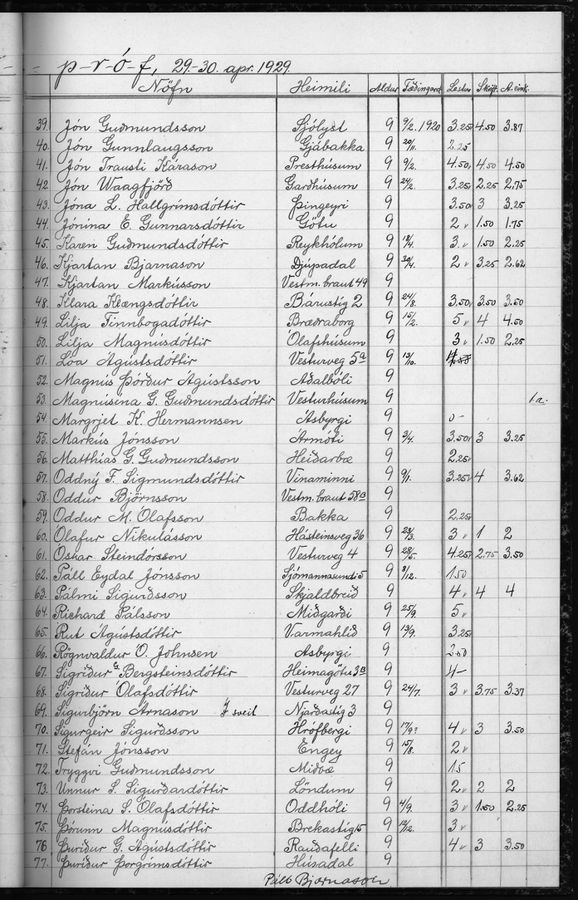 p-r-ó-f, 29.-30. apr. 1929.
Nöfn Heimili Aldur Fæðingard. Lestur Skrift A. eink.
39. Jón Guðmundsson Sjólyst 9 9/2. 1920 3.25 4.50 3.87
40. Jón Gunnlaugsson Gjábakka 9 20/11. 2.25
41. Jón Trausti Kárason Presthúsum 9 9/2. 4.50 4.50 4.50
42. Jón Waagfjörð Garðhúsum 9 24/2. 3.25 2.25 2.75
43. Jóna L. Hallgrímsdóttir Þingeyri 9 3.50 3 3.25
44. Jónína E. Gunnarsdóttir Götu 9 2 1.50 1.75
45. Karen Guðmundsdóttir Reykhólum 9 3 1.50 2.25
46. Kjartan Bjarnason Djúpadal 9 30/4. 2 3.25 2.62
47. Kjartan Markússon Vestm.braut 49 9
48. Klara Klængsdóttir Bárustíg 2 9 24/8. 3.50 3.50 3.50
49. Lilja Finnbogadóttir Bræðraborg 9 15/2. 5 4 4.50
50. Lilja Magnúsdóttir Ólafshúsum 9 3 1.50 2.25
51. Lóa Ágústsdóttir Vesturveg 5a 9 13/10.
52. Magnús Þórður Ágústsson Aðalbóli 9
53. Magnúsína G. Guðmundsdóttir Vesturhúsum 9
54. Margrjet K. Hermannsen Ásbyrgi 9 0-
55. Markús Jónsson Ármóti 9 3/4. 3.50 3 3.25
56. Matthías G. Guðmundsson Heiðarbæ 9 2.25
57. Oddný F. Sigmundsdóttir Vinaminni 9 9/1. 3.25 4 3.62
58. Oddur Björnsson Vestm.braut 58a 9
59. Oddur M. Ólafsson Bakka 9 2.25
60. Ólafur Nikulásson Hásteinsveg 36 9 23/3. 3 1 2
61. Óskar Steindórsson Vesturveg 4 9 28/5. 4.25 2.75 3.50
62. Páll Eydal Jónsson Sjómannasundi 5 9 8/12. 1.50
63. Pálmi Sigurðsson Skjaldbreið 9 4 4 4
64. Richard Pálsson Miðgarði 9 25/9. 5
65. Rut Ágústsdóttir Varmahlíð 9 13/9. 3.25
66. Rögnvaldur Ó. Johnsen Ásbyrgi 9 2.50
67. Sigríður G Bergsteinsdóttir Heimagötu 3a 9 4-
68. Sigríður Ólafsdóttir Vesturveg 27 9 24/7. 3 3.75 3.37
69. Sigurbjörn Árnason Í sveit Njarðastíg 3 9
70. Sigurgeir Sigurðsson Hrófbergi 9 4 3 3.50
71. Stefán Jónsson Engey 9 15/8. 2
72. Tryggvi Guðmundsson Miðbæ 9 1.5
73. Unnur S. Sigurðardóttir Löndum 9 2 2 2
74. Þorsteina S. Ólafsdóttir Oddhóli 9 4/9. 3 1.50 2.25
75. Þórunn Magnúsdóttir Brekastíg 15 9 13/12. 3
76 Þuríður G. Ágústsdóttir Rauðafelli 9 4 3 3.50
77. Þuríður Þorgrímsdóttir Húsadal 9
Páll Bjarnason